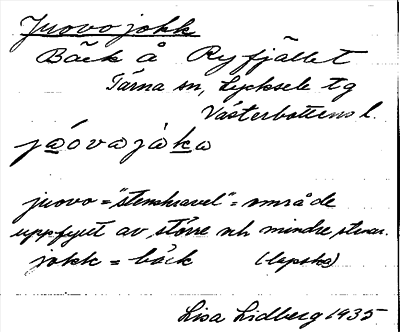 Juovojokk
Bäck å Ryfjället
Tärna sn, Lycksele tg
Västerbottens l.
jaóvajåka
juovo = "stenskravel" = område
uppfyllt av större och mindre stenar.
jokk = bäck (lapska)
Lisa Lidberg 1935